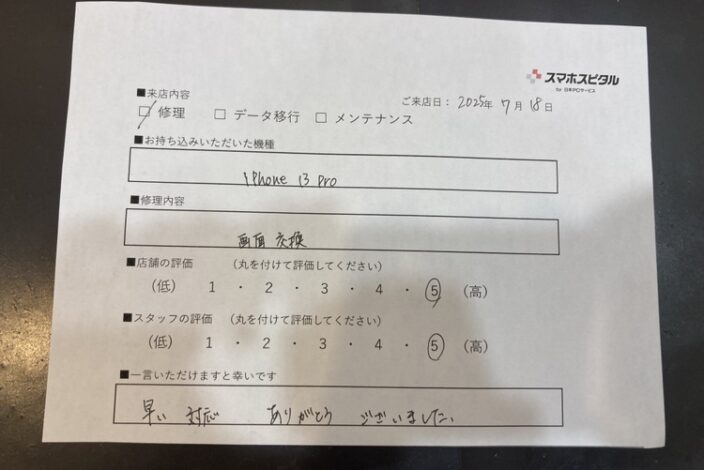 スマホスピタル
by 日本PCサービス
■来店内容
ご来店日： 2025年 7月 18日
☐ 修理 ☐ データ移行 ☐ メンテナンス
■お持ち込みいただいた機種
iPhone 13 pro
■修理内容
画面 交換
■店舗の評価 （丸を付けて評価してください）
（低） 1 ・ 2 ・ 3 ・ 4 ・ 5 （高）
■スタッフの評価 （丸を付けて評価してください）
（低） 1 ・ 2 ・ 3 ・ 4 ・ 5 （高）
■一言いただけますと幸いです
早い 対応 ありがとう ございました.